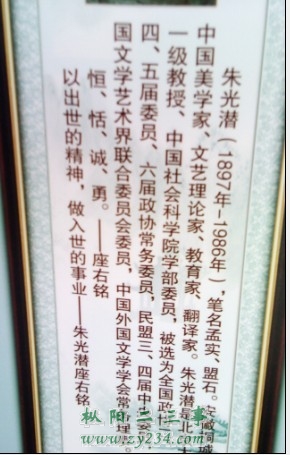 朱光潜（1897年-1986年），笔名孟实、盟石。安徽桐城
中国美学家、文艺理论家、教育家、翻译家。朱光潜是北
一级教授、中国社会科学院学部委员，被选为全国政
四、五届委员、六届政协常务委员，民盟三、四届中
国文学艺术界联合委员会委员，中国外国文学学会常
恒、恬、诚、勇。——座右铭
以出世的精神，做入世的事业——朱光潜座右铭
枞阳二三事
www.zy234.com